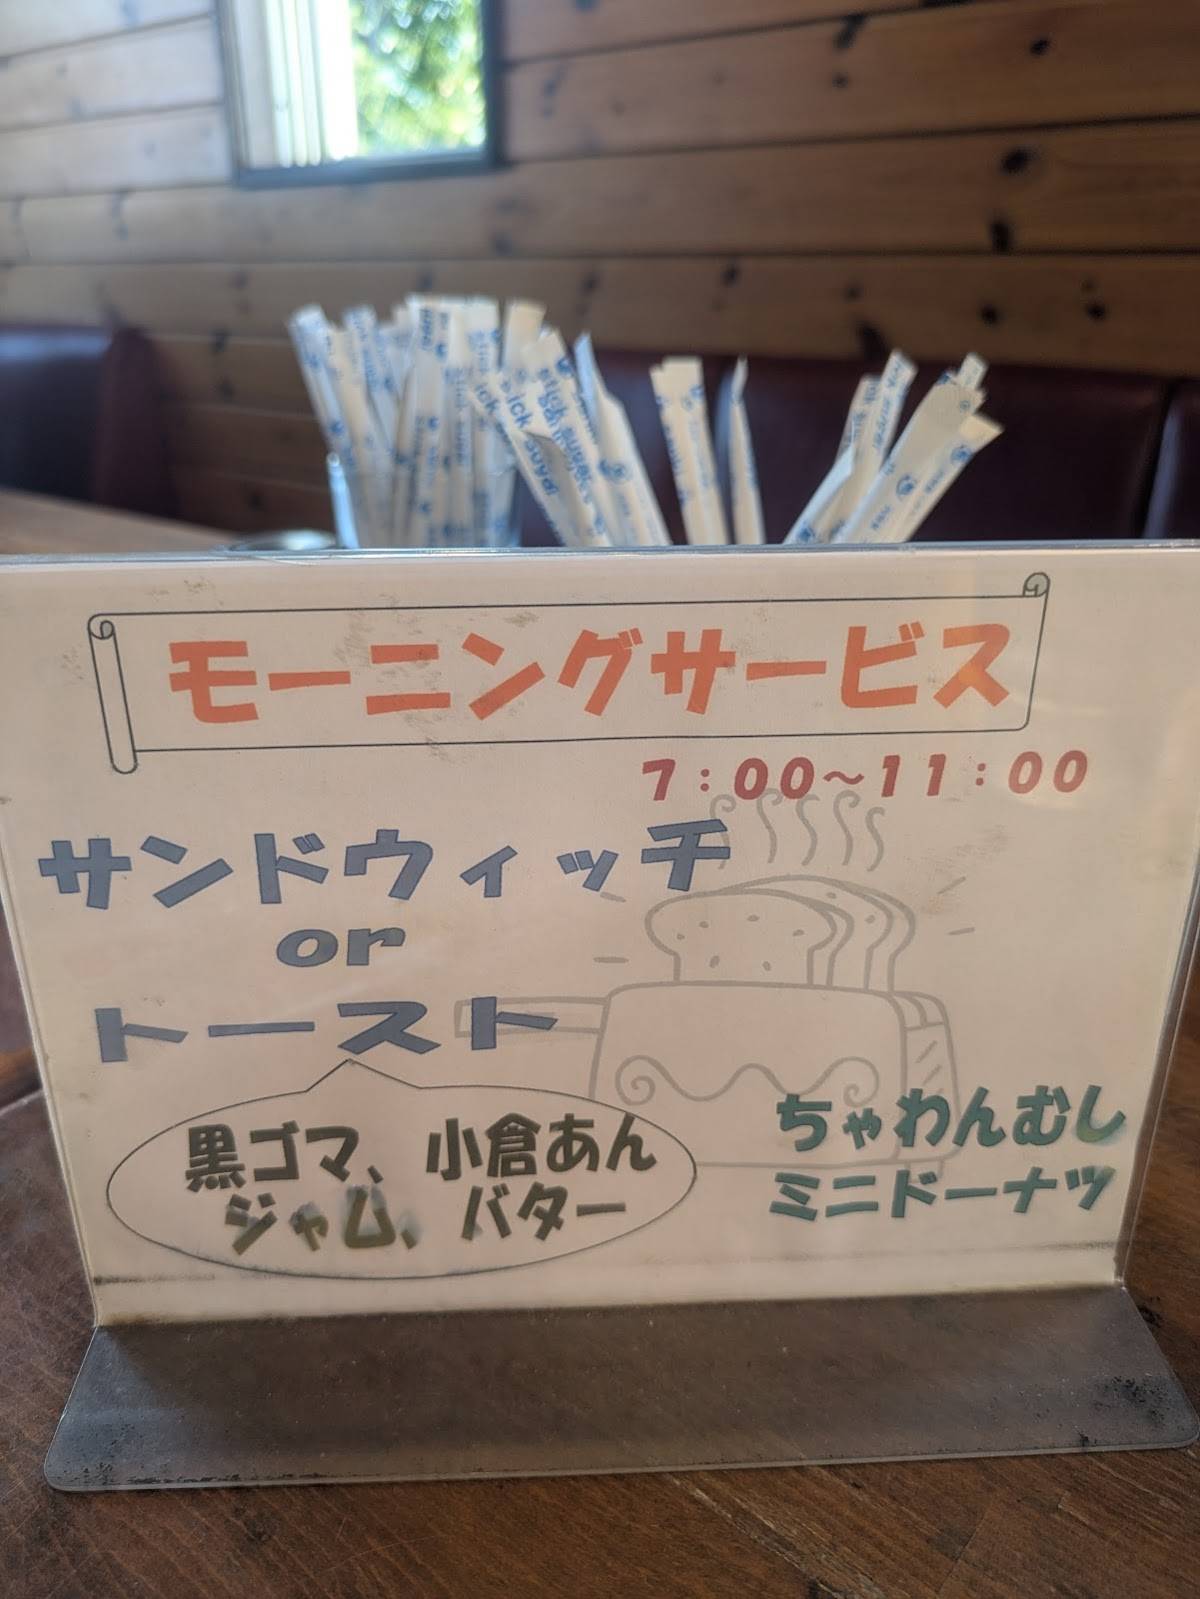 stick sugar
モーニングサービス
7:00～11:00
サンドウィッチ
or
トースト
黒ゴマ、小倉あん
ジャム、バター
ちゃわんむし
ミニドーナツ